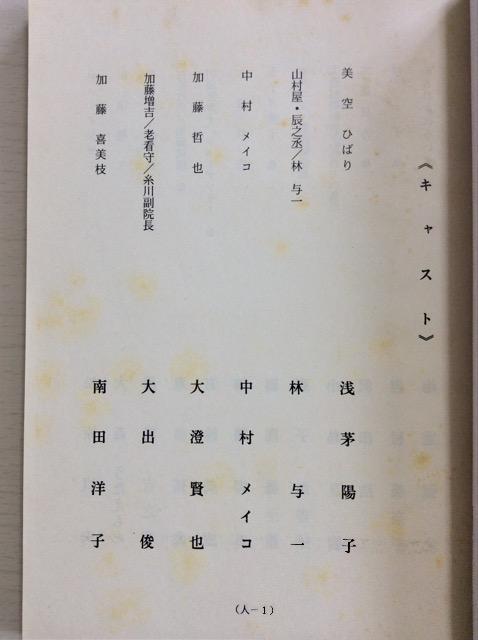 《キャスト》
美空ひばり 浅茅陽子
山村屋・辰之丞／林与一 林与一
中村メイコ 中村メイコ
加藤哲也 大澄賢也
加藤増吉／老看守／糸川副院長 大出俊
加藤喜美枝 南田洋子
（人－1）